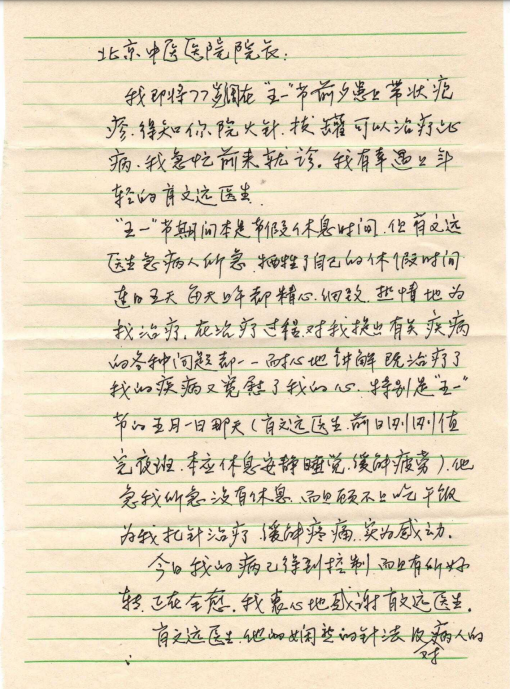 北京中医医院院长：
我即将77岁周在"五一"节前夕患上带状疱
疹，得知你院火针、拔罐可以治疗此
病，我急忙前来就诊。我有幸遇上年
轻的育文远医生.
"五一"节期间本是节假休息时间，但育文远
医生急病人所急，牺牲了自己的休假时间
连日五天每天上午都精心、细致、热情地为
我治疗，在治疗过程对我提出有关疾病
的各种问题都一一耐心地讲解既治疗了
我的疾病又宽慰了我的心，特别是"五一"
节的五月一日那天（育文远医生前日刚刚值
完夜班，本应休息安静睡觉，缓解疲劳），他
急我所急没有休息，而且顾不上吃午饭
为我扎针治疗，缓解疼痛，实为感动.
今日我的病已得到控制，而且有所好
转，正在全愈。我衷心地感谢育文远医生.
育文远医生，他的娴熟的针法及对病人的